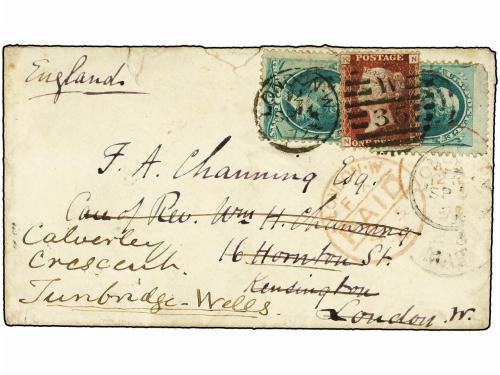 England
POSTAGE
N N
W
35
ONE PENNY
LONDON N.W
PAID
F. A. Channing Esq.
Care of Rev. Wm H. Channing
16 Hornton St.
Kensington
London. W.
Calverley
Crescent.
Tunbridge-Wells.